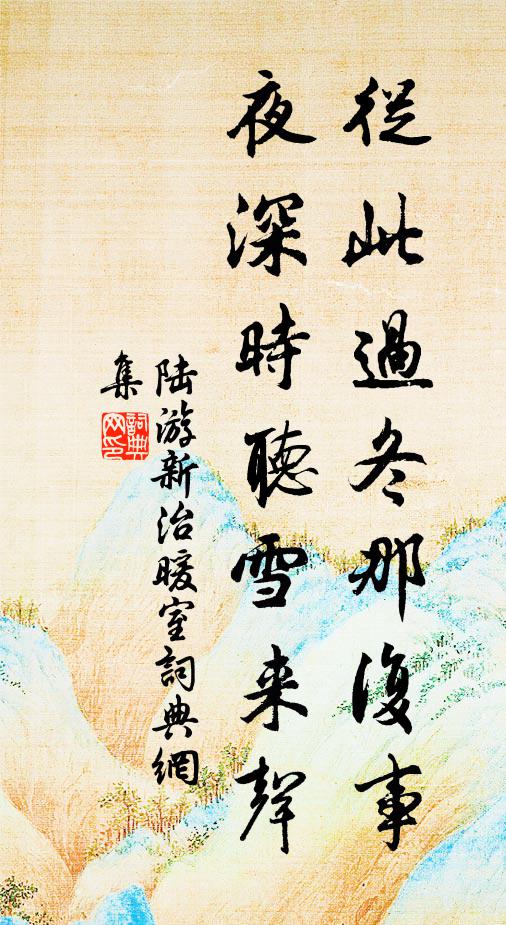 從此過冬那復事
夜深時聽雪来聲
陆游新治暖室詞典網
集
詞典網印